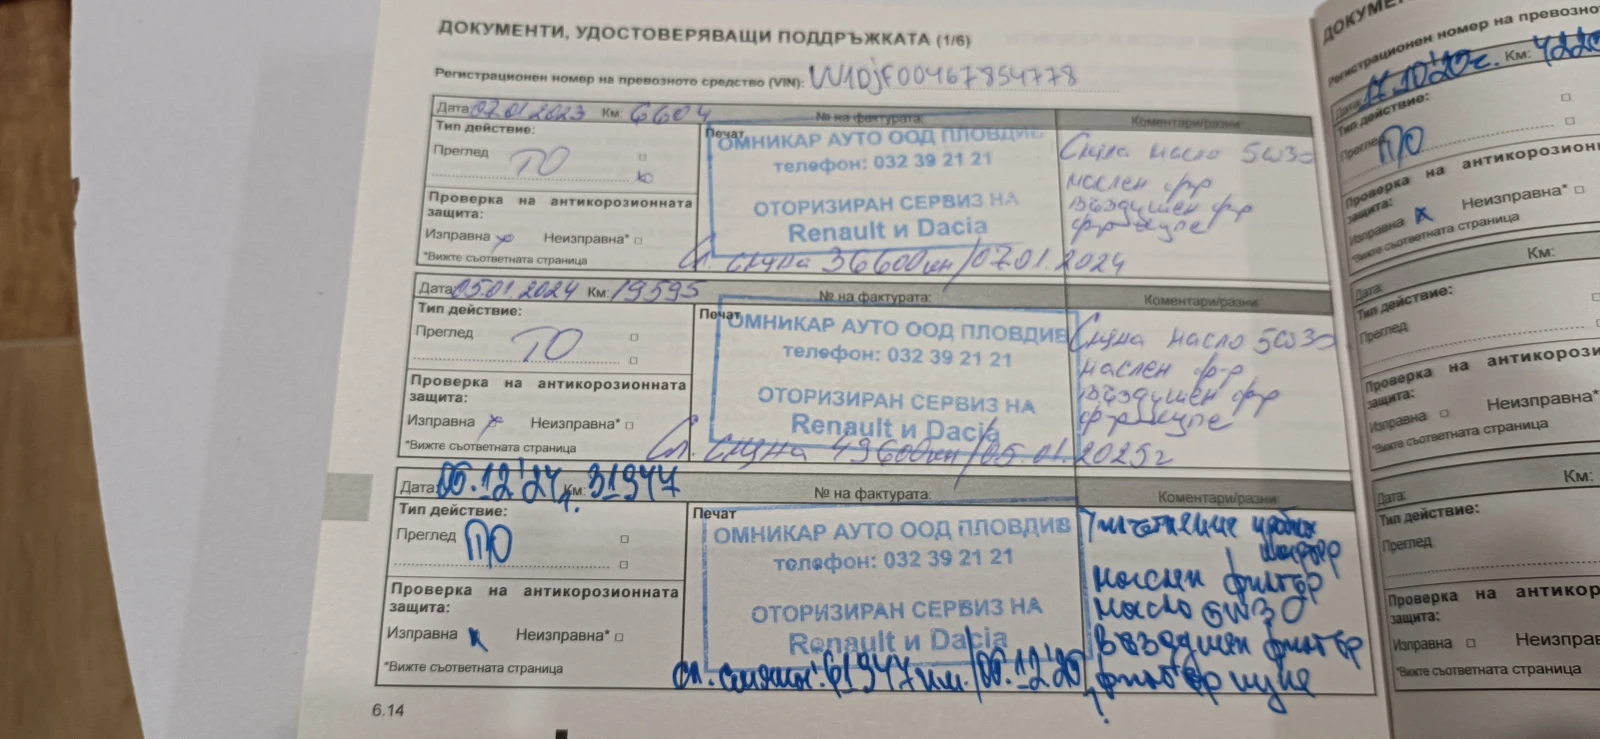 ДОКУМЕНТИ, УДОСТОВЕРЯВАЩИ ПОДДРЪЖКАТА (1/6)
Регистрационен номер на превозното средство (VIN): W1DjF00467854778
Дата: 07.01.2023 Км: 6604 № на фактурата: Коментари/разни
Тип действие:
Преглед ТО
Проверка на антикорозионната
защита:
Изправна Неизправна*
*Вижте съответната страница
Печат
ОМНИКАР АУТО ООД ПЛОВДИВ
телефон: 032 39 21 21
ОТОРИЗИРАН СЕРВИЗ НА
Renault и Dacia
Сл. смяна 36600км/07.01.2024
Смяна масло 5w30
маслен ф-р
въздушен ф-р
ф-р купе
Дата: 05.01.2024 Км: 19595 № на фактурата: Коментари/разни
Тип действие:
Преглед ТО
Проверка на антикорозионната
защита:
Изправна Неизправна*
*Вижте съответната страница
Печат
ОМНИКАР АУТО ООД ПЛОВДИВ
телефон: 032 39 21 21
ОТОРИЗИРАН СЕРВИЗ НА
Renault и Dacia
Сл. смяна 49600км/05.01.2025г
Смяна масло 5w30
маслен ф-р
въздушен ф-р
ф-р купе
Дата: 06.12'24г. Км: 31947 № на фактурата: Коментари/разни
Тип действие:
Преглед ПО
Проверка на антикорозионната
защита:
Изправна Неизправна*
*Вижте съответната страница
Печат
ОМНИКАР АУТО ООД ПЛОВДИВ
телефон: 032 39 21 21
ОТОРИЗИРАН СЕРВИЗ НА
Renault и Dacia
сл. смяна: 61947 км./06.12'25
маслен филтър
масло 5W30
въздушен филтър
филтър купе
6.14
Регистрационен номер на превозно
Дата: 11.10'20г. Км: 4220
Тип действие:
Преглед ПО
Проверка на антикорозион
защита:
Изправна Неизправна*
*Вижте съответната страница
Дата: Км:
Тип действие:
Преглед
Проверка на антикорози
защита:
Изправна Неизправна*
*Вижте съответната страница
Дата: Км:
Тип действие:
Преглед
Проверка на антикор
защита:
Изправна Неизправ
*Вижте съответната страница